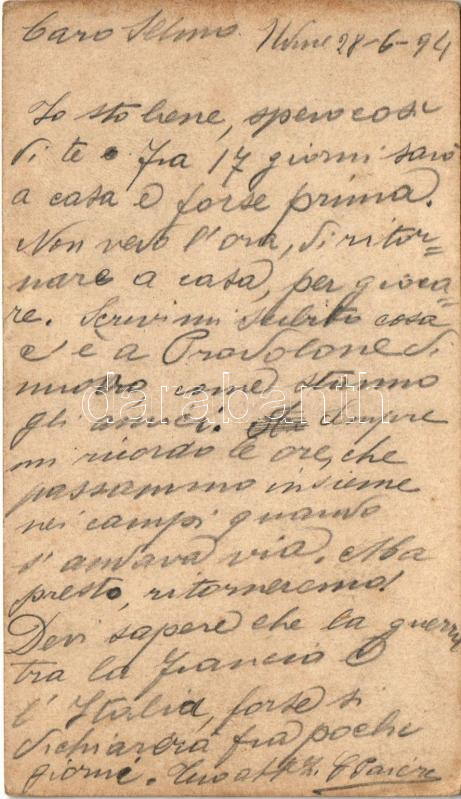 Caro Selmo. Udine 28-6-94
Io sto bene, spero così
di te e fra 17 giorni sarò
a casa e forse prima.
Non vedo l'ora, di ritor=
nare a casa, per gioca=
re. Scrivimi subito cosa
c'è a Provolone di
nuovo come stanno
gli amici. Sempre
mi ricordo le ore, che
passammo insieme
nei campi quando
s'andava via. Ma
presto, ritorneremo!
Devi sapere che la guerra
tra la Francia e
l'Italia, forse si
dichiarerà fra pochi
giorni. Tuo
darabanth